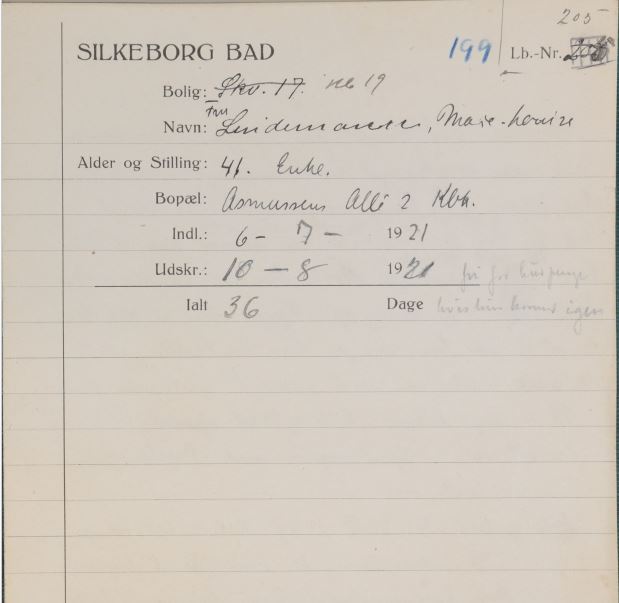 205
SILKEBORG BAD 199 Lb.-Nr. 205
Bolig: Skv. 17. No 19
Fru
Navn: Lindemann, Marie-Louise
Alder og Stilling: 41. Enke.
Bopæl: Asmussens Allé 2 Kbh.
Indl.: 6 - 7 - 1921
Udskr.: 10 - 8 1921 fri for kurpenge
Ialt 36 Dage hvis hun kommer igen